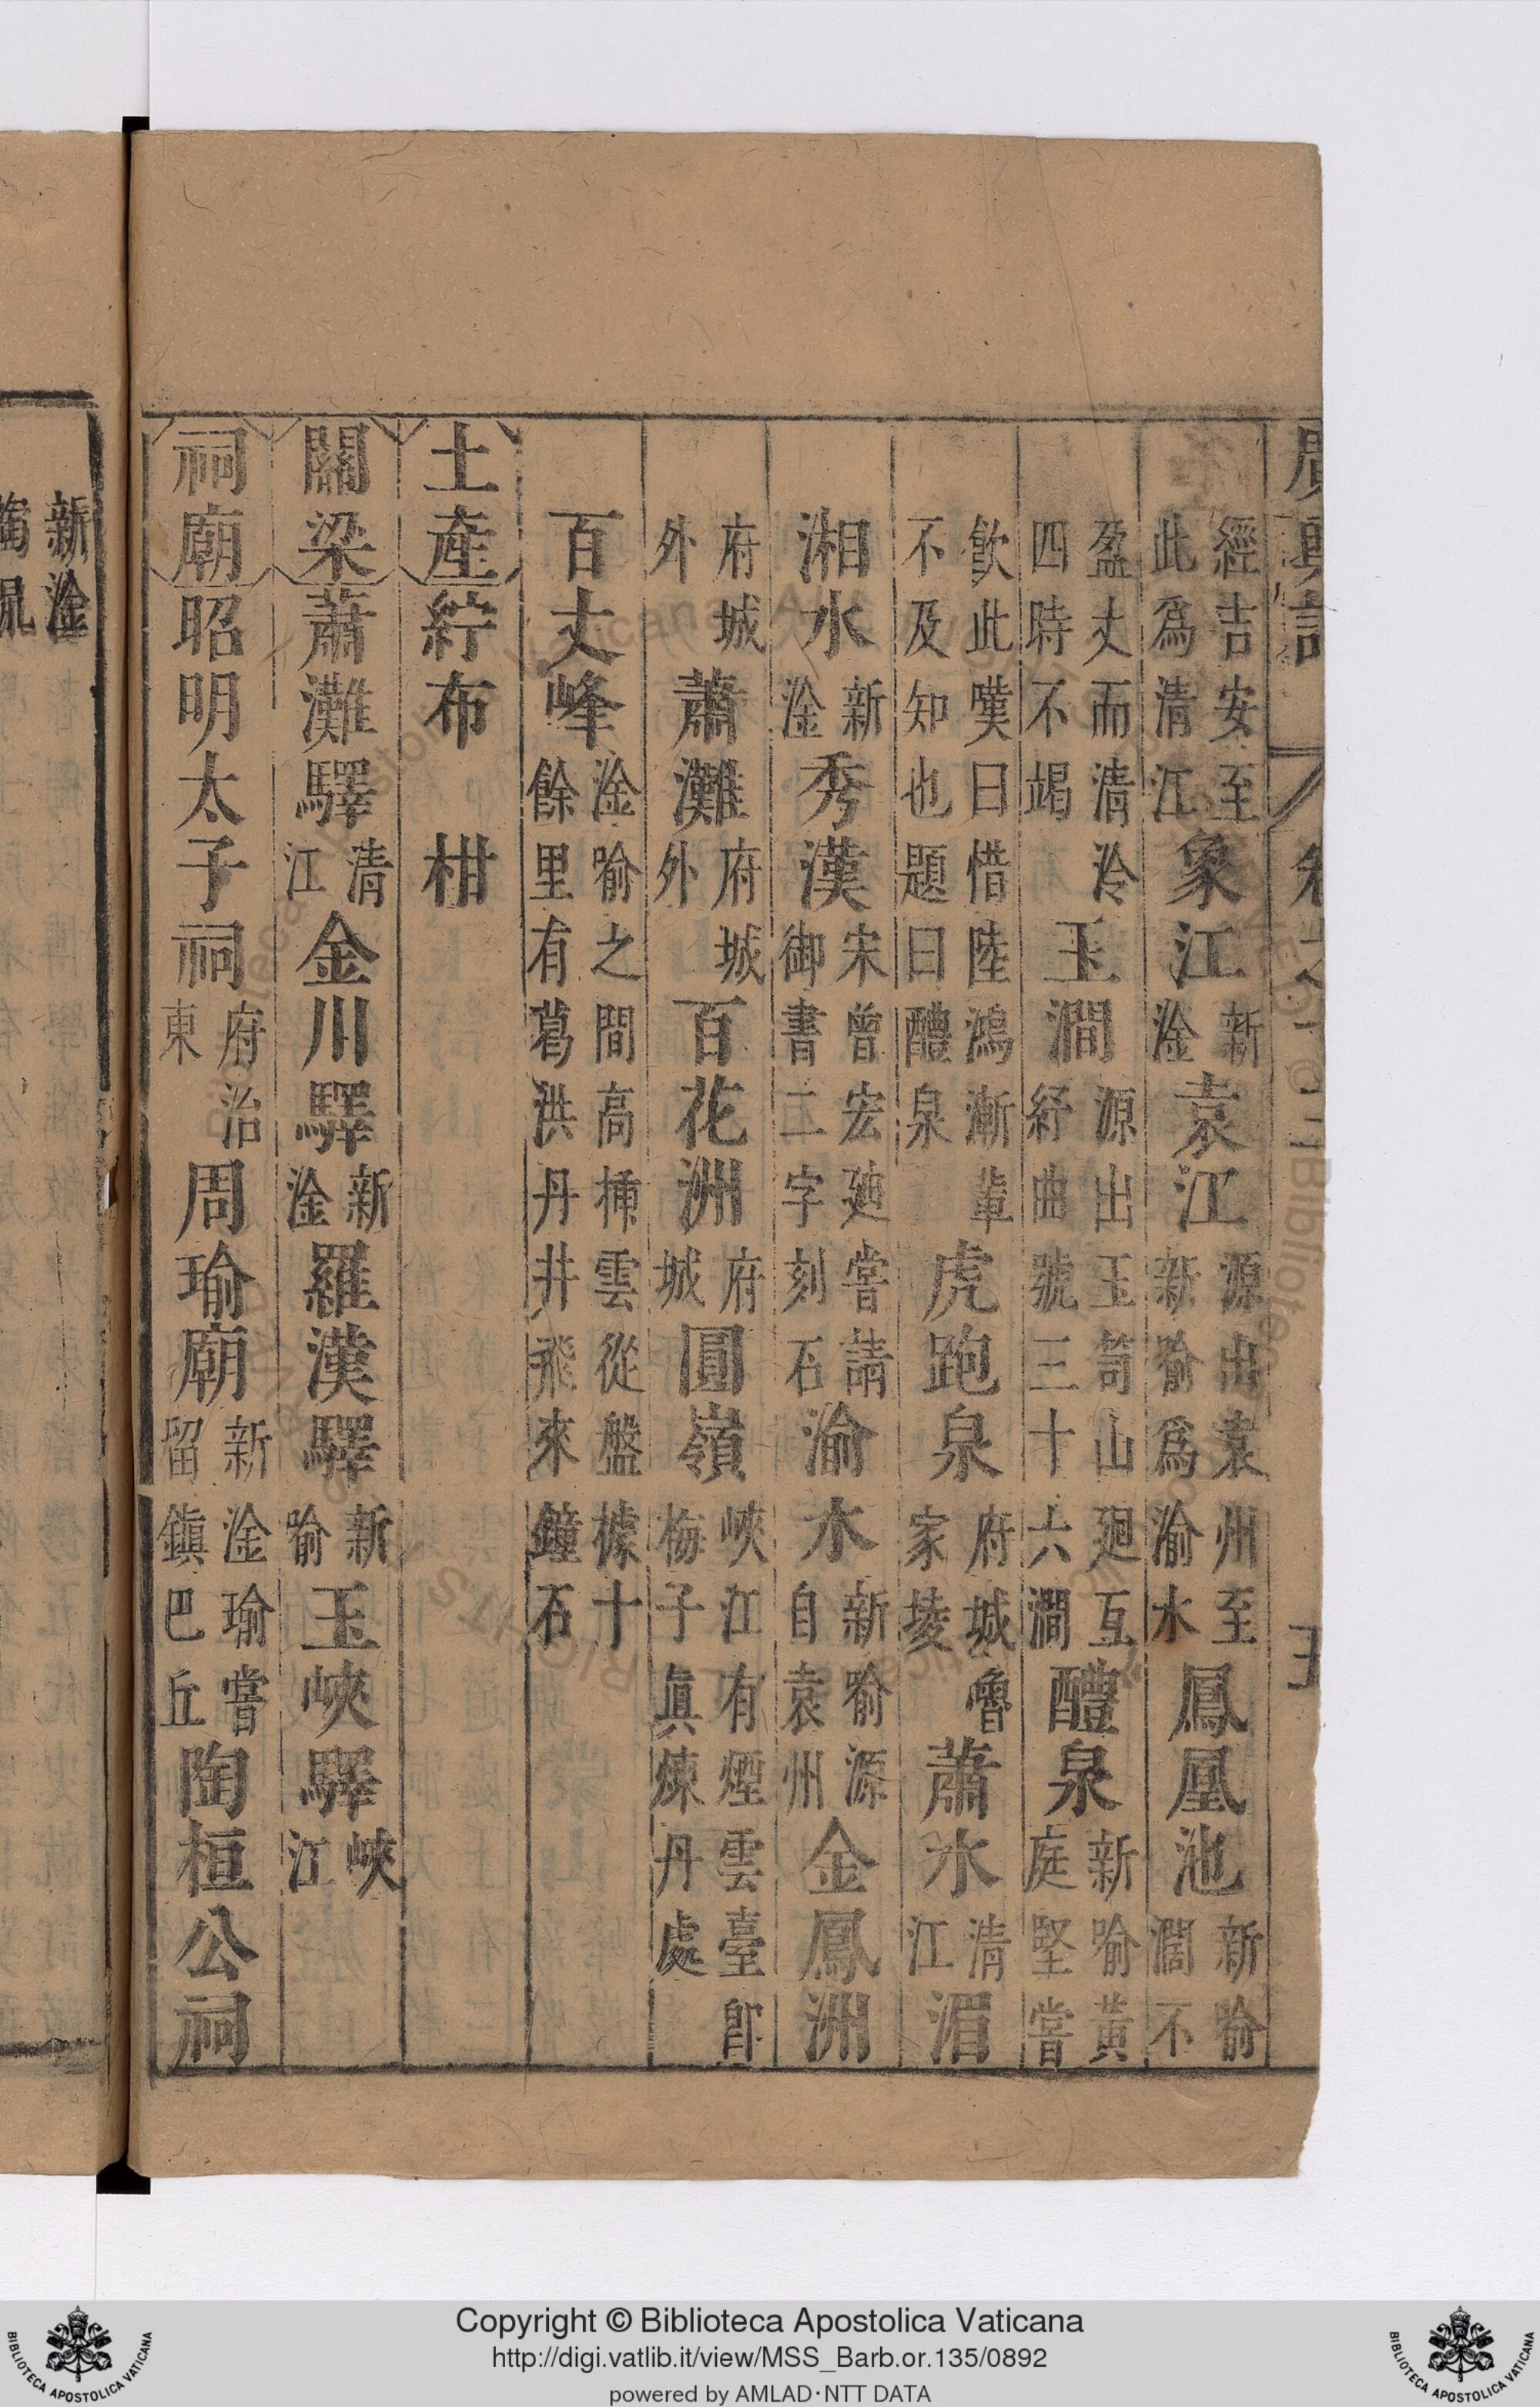 經吉安至此爲清江象江新淦袁江源出袁州至新喻爲渝水鳳凰池新喻濶不
盈丈而清泠四時不竭玉澗源出玉笥山廻互紆曲號三十六澗醴泉新喻黃庭堅嘗
飲此嘆曰惜陸鴻漸輩不及知也題曰醴泉虎跑泉府城魯家堎蕭水清江湄
湘水新淦秀漢宋曾宏廸嘗請御書二字刻石渝水新喻源自袁州金鳳洲
府城外蕭灘府城外百花洲府城圓嶺峽江有煙雲臺卽梅子眞煉丹處
百丈峰淦喻之間高揷雲從盤據十餘里有葛洪丹井飛來鐘石
土產紵布 柑
關梁蕭灘驛清江金川驛新淦羅漢驛新喻玉峽驛峽江
祠廟昭明太子祠府治東周瑜廟新淦瑜嘗留鎮巴丘陶桓公祠
新淦
Copyright © Biblioteca Apostolica Vaticana
http://digi.vatlib.it/view/MSS_Barb.or.135/0892
powered by AMLAD·NTT DATA
BIBLIOTECA APOSTOLICA VATICANA
BIBLIOTECA APOSTOLICA VATICANA